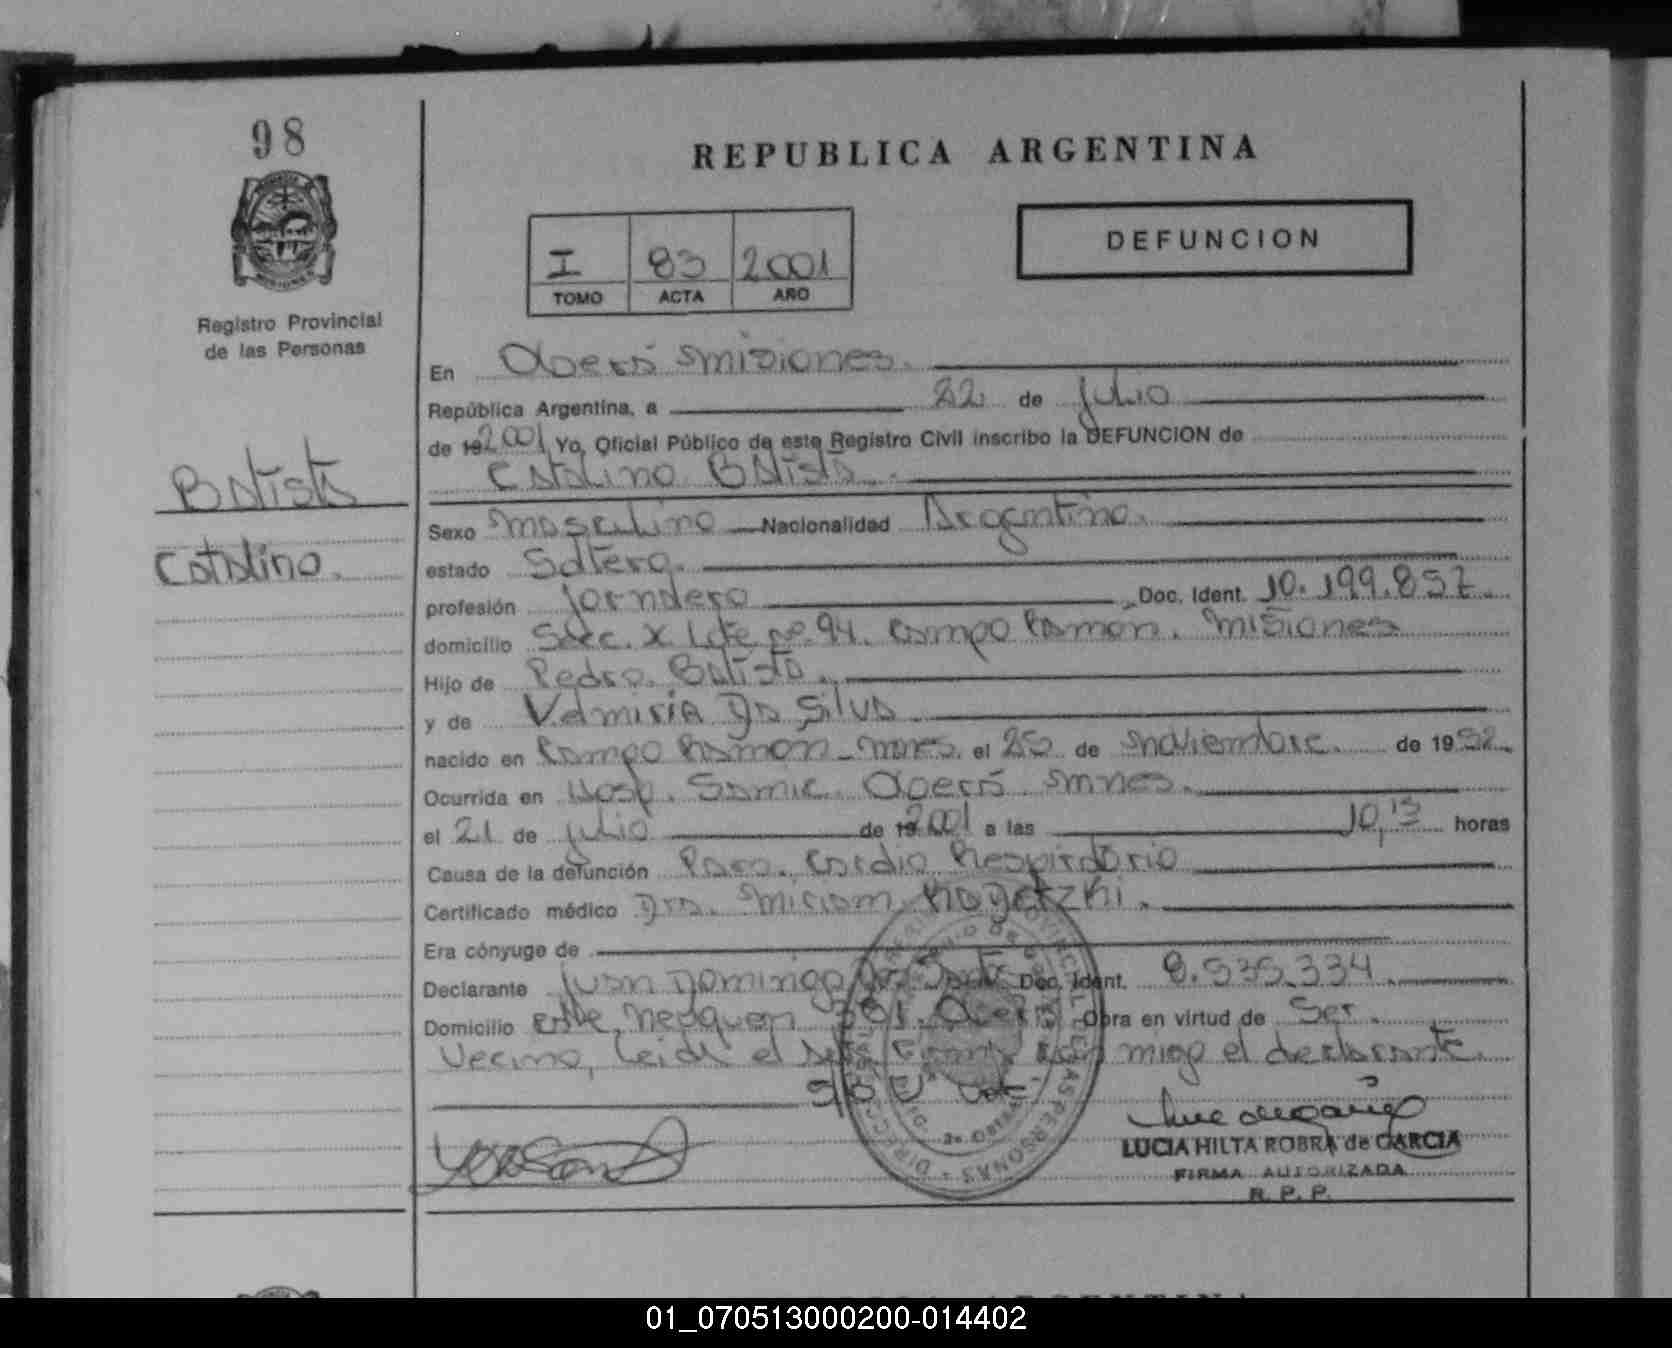 98
REPUBLICA ARGENTINA
DEFUNCION
I 83 2001
TOMO ACTA AÑO
Registro Provincial
de las Personas
En Oberá Misiones.
República Argentina, a 22 de Julio
de 19 2001 Yo, Oficial Público de este Registro Civil inscribo la DEFUNCION de
Catalino Batista.
Batista
Catalino.
Sexo Masculino Nacionalidad Argentino.
estado Soltero.
profesión Jornalero Doc. Ident. 10.199.857.
domicilio Secc. X Lote nº 94. Campo Ramon. Misiones
Hijo de Pedro Batista.
y de Valmiria Da Silva
nacido en Campo Ramon - Mnes. el 25 de Noviembre de 1952.
Ocurrida en Hosp. Samic Oberá Mnes.
el 21 de Julio de 19 2001 a las 10,13 horas
Causa de la defunción Paro. Cardio Respiratorio
Certificado médico Dra. Miriam
Era cónyuge de
Declarante Juan Domingo Dos Santos Doc. Ident. 8.535.334
Domicilio Calle, Neuquen 381. Oberá Obra en virtud de Ser
Vecino, Leida el Acta Firma migo el declarante
LUCIA HILTA ROBRA de GARCIA
FIRMA AUTORIZADA
R. P. P.
01_070513000200-014402